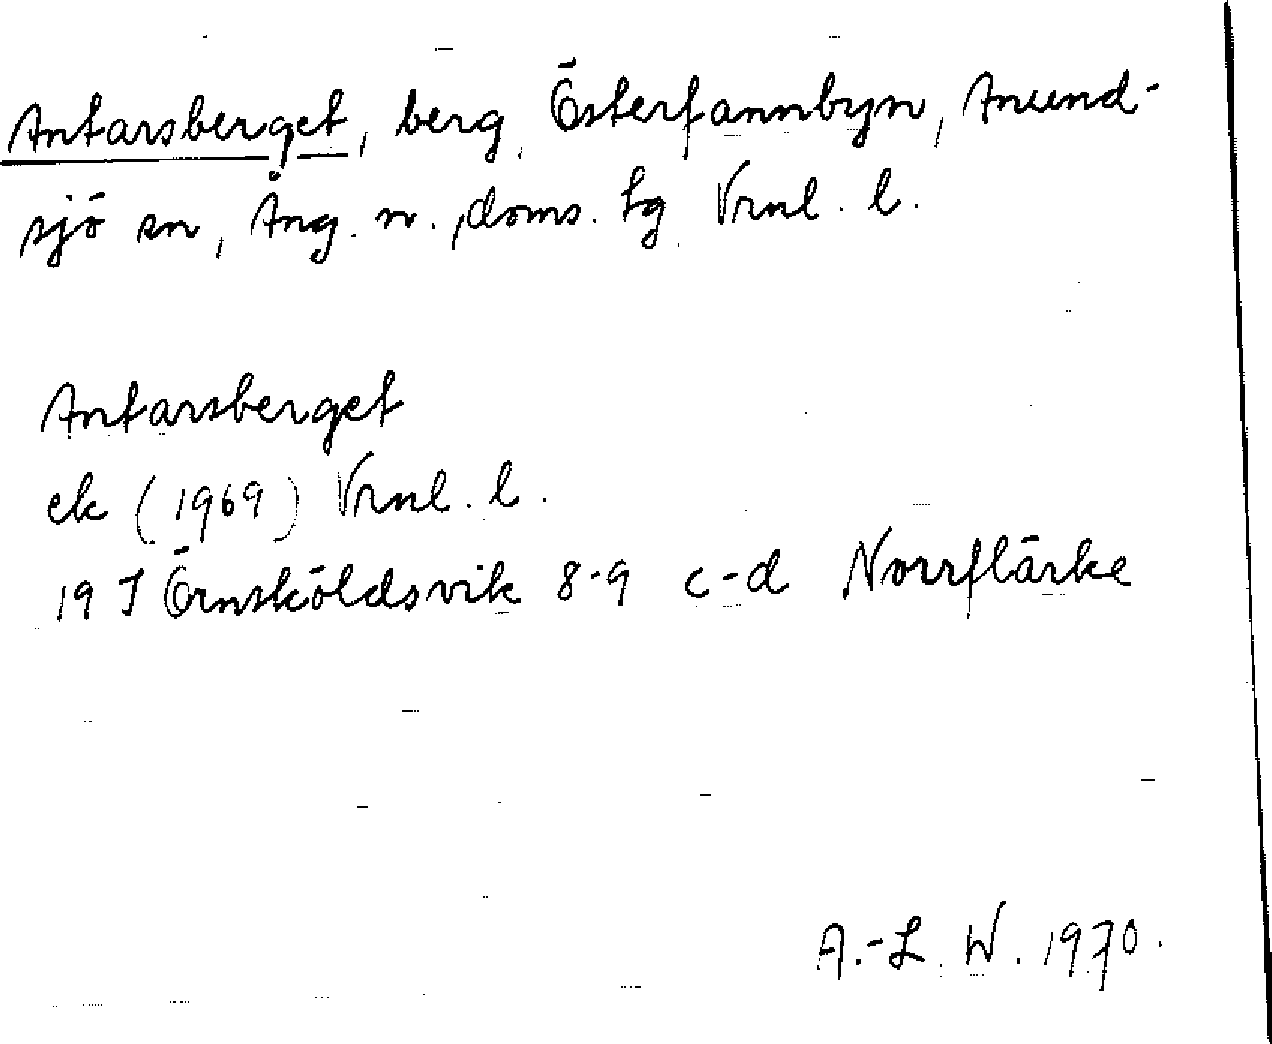 Antarsberget, berg, Österfannbyn, Anund-
sjö sn, Ång. n., doms. tg Vrnl. l.
Antarsberget
ek (1969) Vrnl. l.
19 J Örnsköldsvik 8-9 c-d Norrflärke
A.-L. W. 1970.